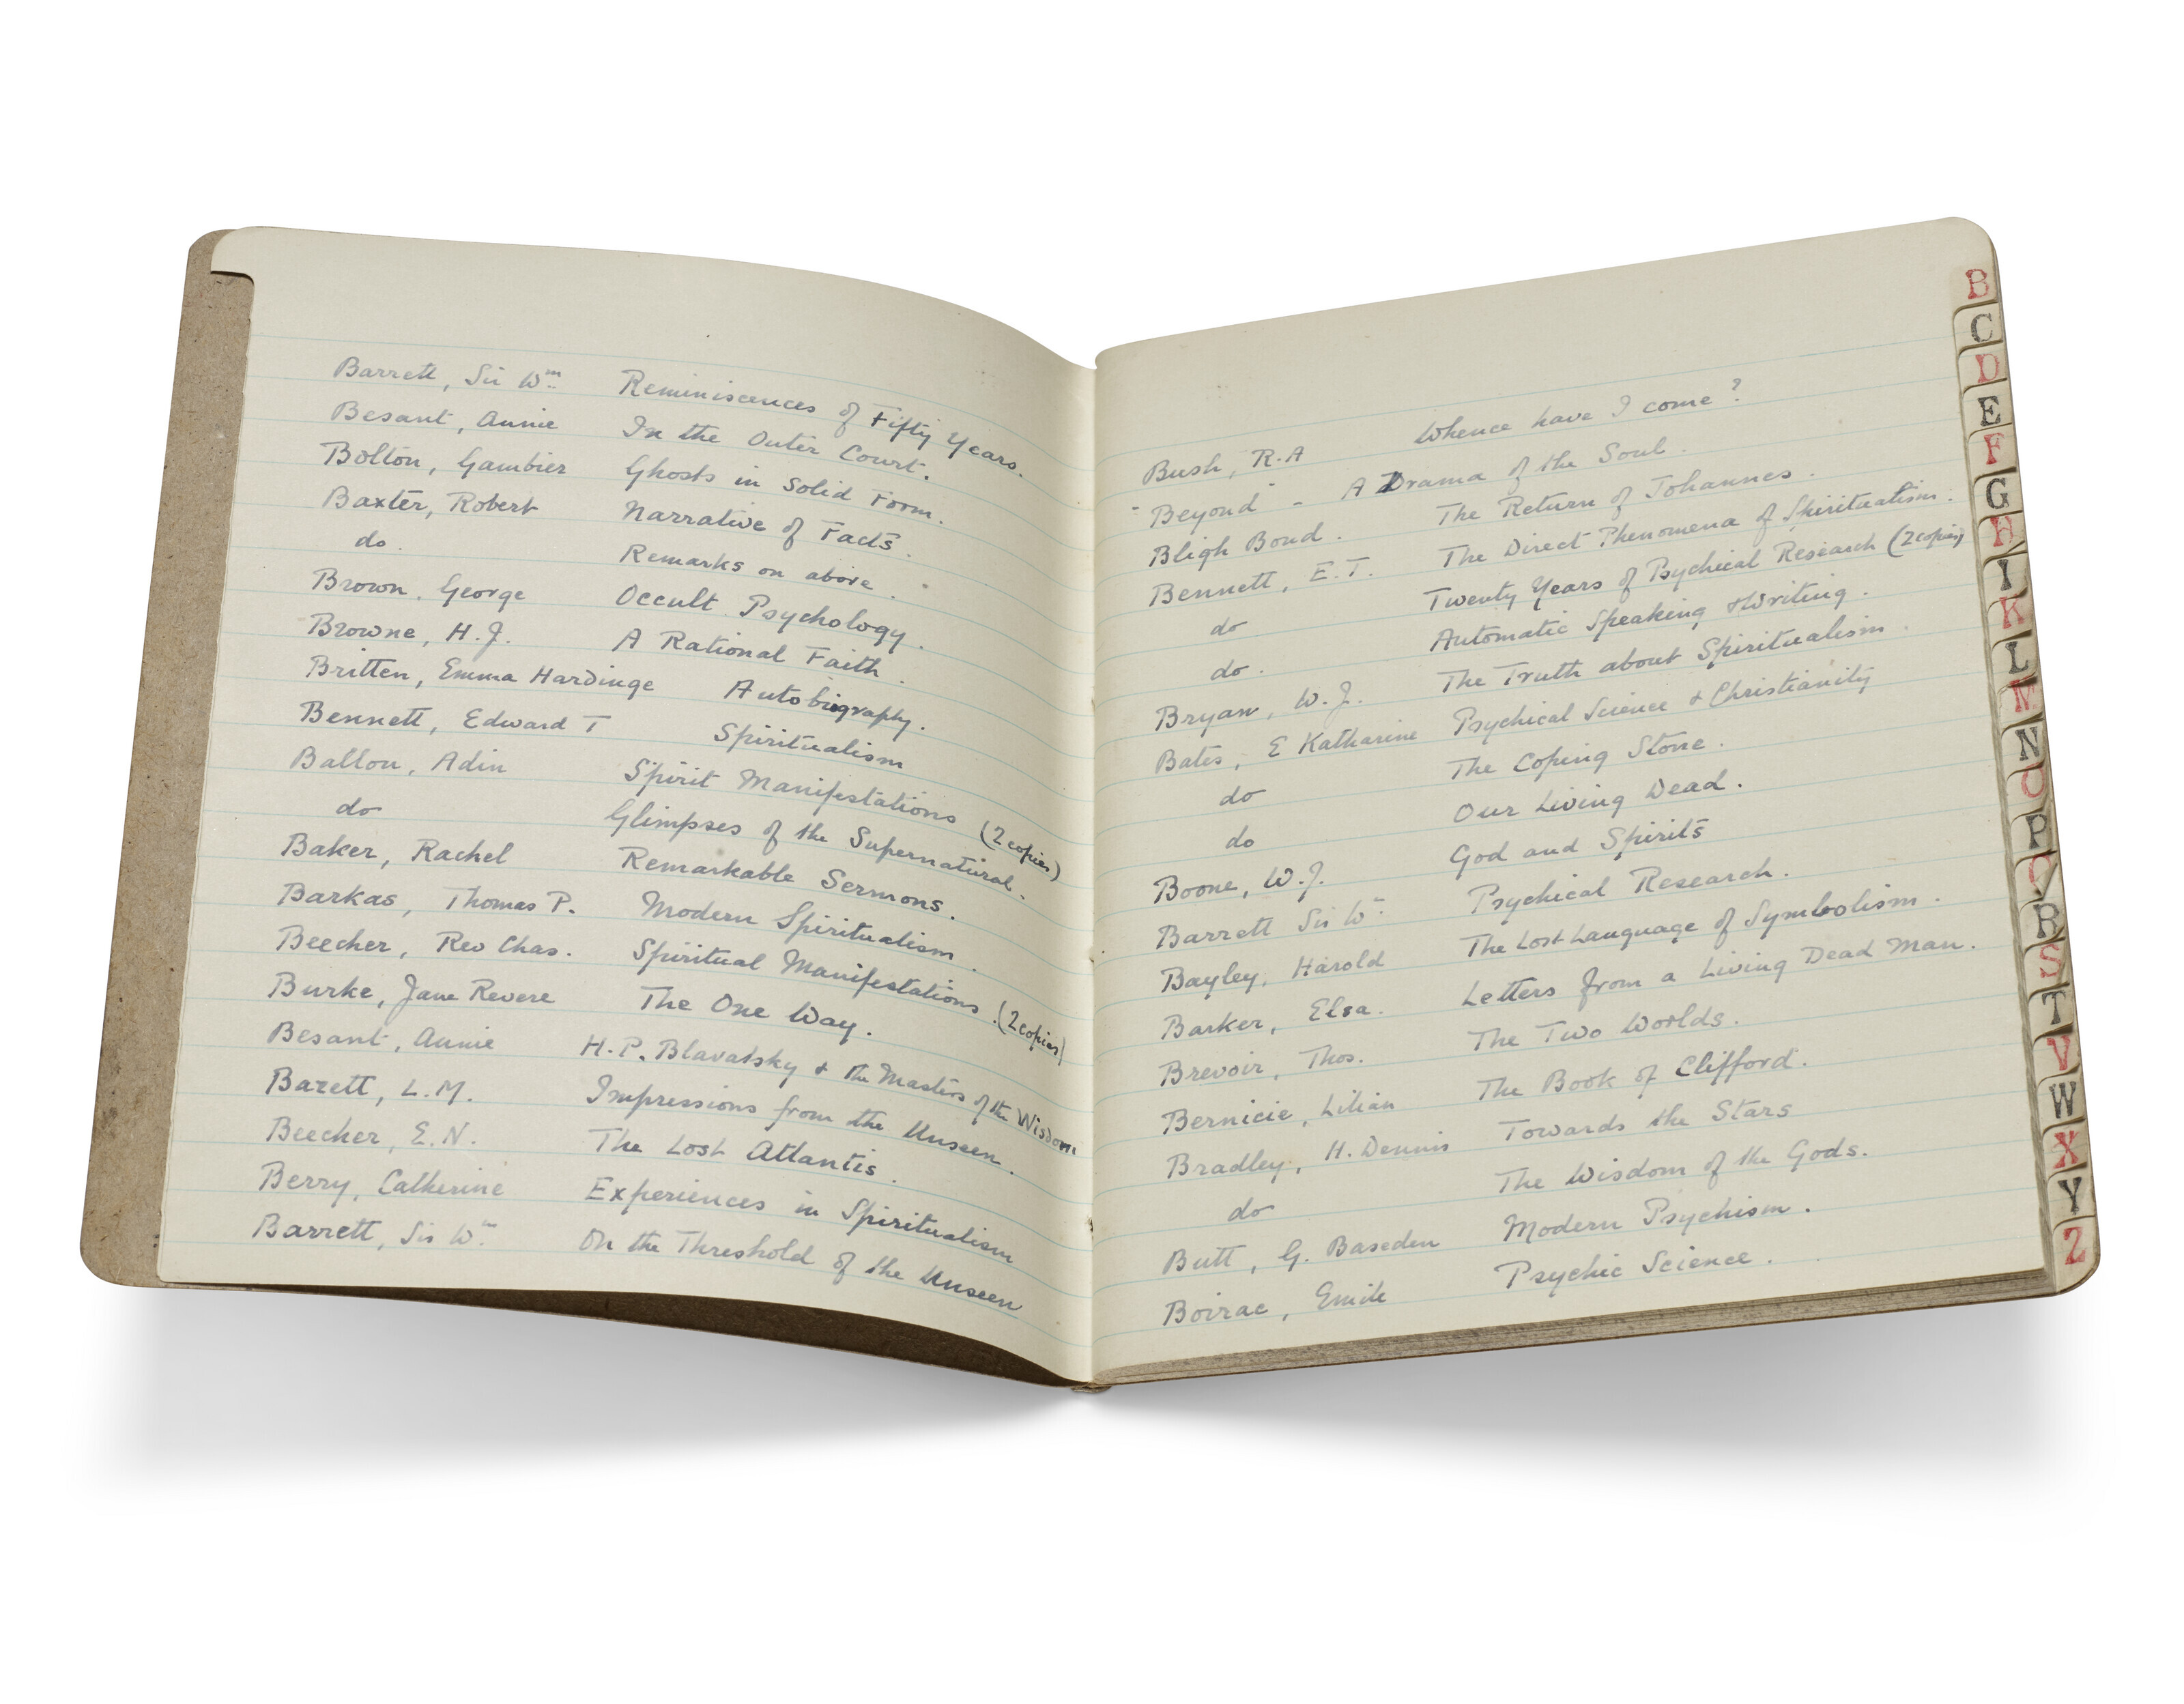 Barrett, Sir Wm Reminiscences of Fifty Years.
Besant, Annie In the Outer Court.
Bolton, Gambier Ghosts in Solid Form.
Baxter, Robert Narrative of Facts.
do. Remarks on above.
Brown. George Occult Psychology.
Browne, H.J. A Rational Faith.
Britten, Emma Hardinge Autobiography.
Bennett, Edward T Spiritualism
Ballou, Adin Spirit Manifestations (2 copies)
do Glimpses of the Supernatural.
Baker, Rachel Remarkable Sermons.
Barkas, Thomas P. Modern Spiritualism.
Beecher, Rev Chas. Spiritual Manifestations. (2 copies)
Burke, Jane Revere The One Way.
Besant, Annie H.P. Blavatsky & the Masters of the Wisdom.
Bazett, L.M. Impressions from the Unseen.
Beecher, E.N. The Lost Atlantis.
Berry, Catherine Experiences in Spiritualism
Barrett, Sir Wm. On the Threshold of the Unseen
Bush, R.A Whence have I come?
"Beyond" - A Drama of the Soul.
Bligh Bond. The Return of Johannes.
Bennett, E.T. The Direct Phenomena of Spiritualism.
do Twenty Years of Psychical Research (2 copies)
do. Automatic Speaking & Writing.
Bryan, W.J. The Truth about Spiritualism.
Bates, E Katharine Psychical Science & Christianity
do The Coping Stone.
do Our Living Dead.
Boone, W.J. God and Spirits
Barrett Sir Wm. Psychical Research.
Bayley, Harold The Lost Language of Symbolism.
Barker, Elsa. Letters from a Living Dead Man.
Brevoir, Thos. The Two Worlds.
Bernicie, Lilian The Book of Clifford.
Bradley, H. Dennis Towards the Stars
do The Wisdom of the Gods.
Butt, G. Baseden Modern Psychism.
Boirac, Emile Psychic Science.
B
C
D
E
F
G
H
I
K
L
M
N
O
P
Q
R
S
T
V
W
X
Y
Z